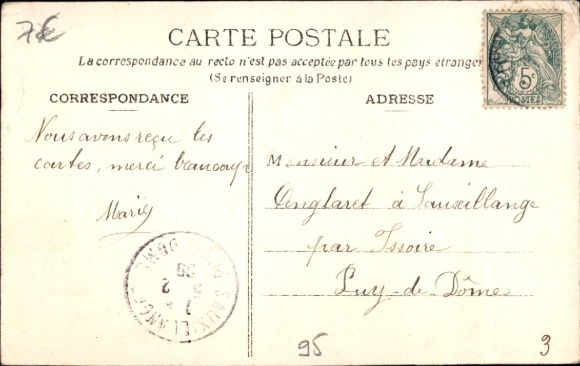 7€
CARTE POSTALE
La correspondance au recto n'est pas acceptée par tous les pays étranger
(Se renseigner à la Poste)
CORRESPONDANCE
ADRESSE
5c
POSTES
Nous avons reçu les
cartes, merci beaucoup
Marie
Monsieur et Madame
à Sauxillange
par Issoire
Puy-de-Dôme
SAUXILLANGES
DOME
95
3